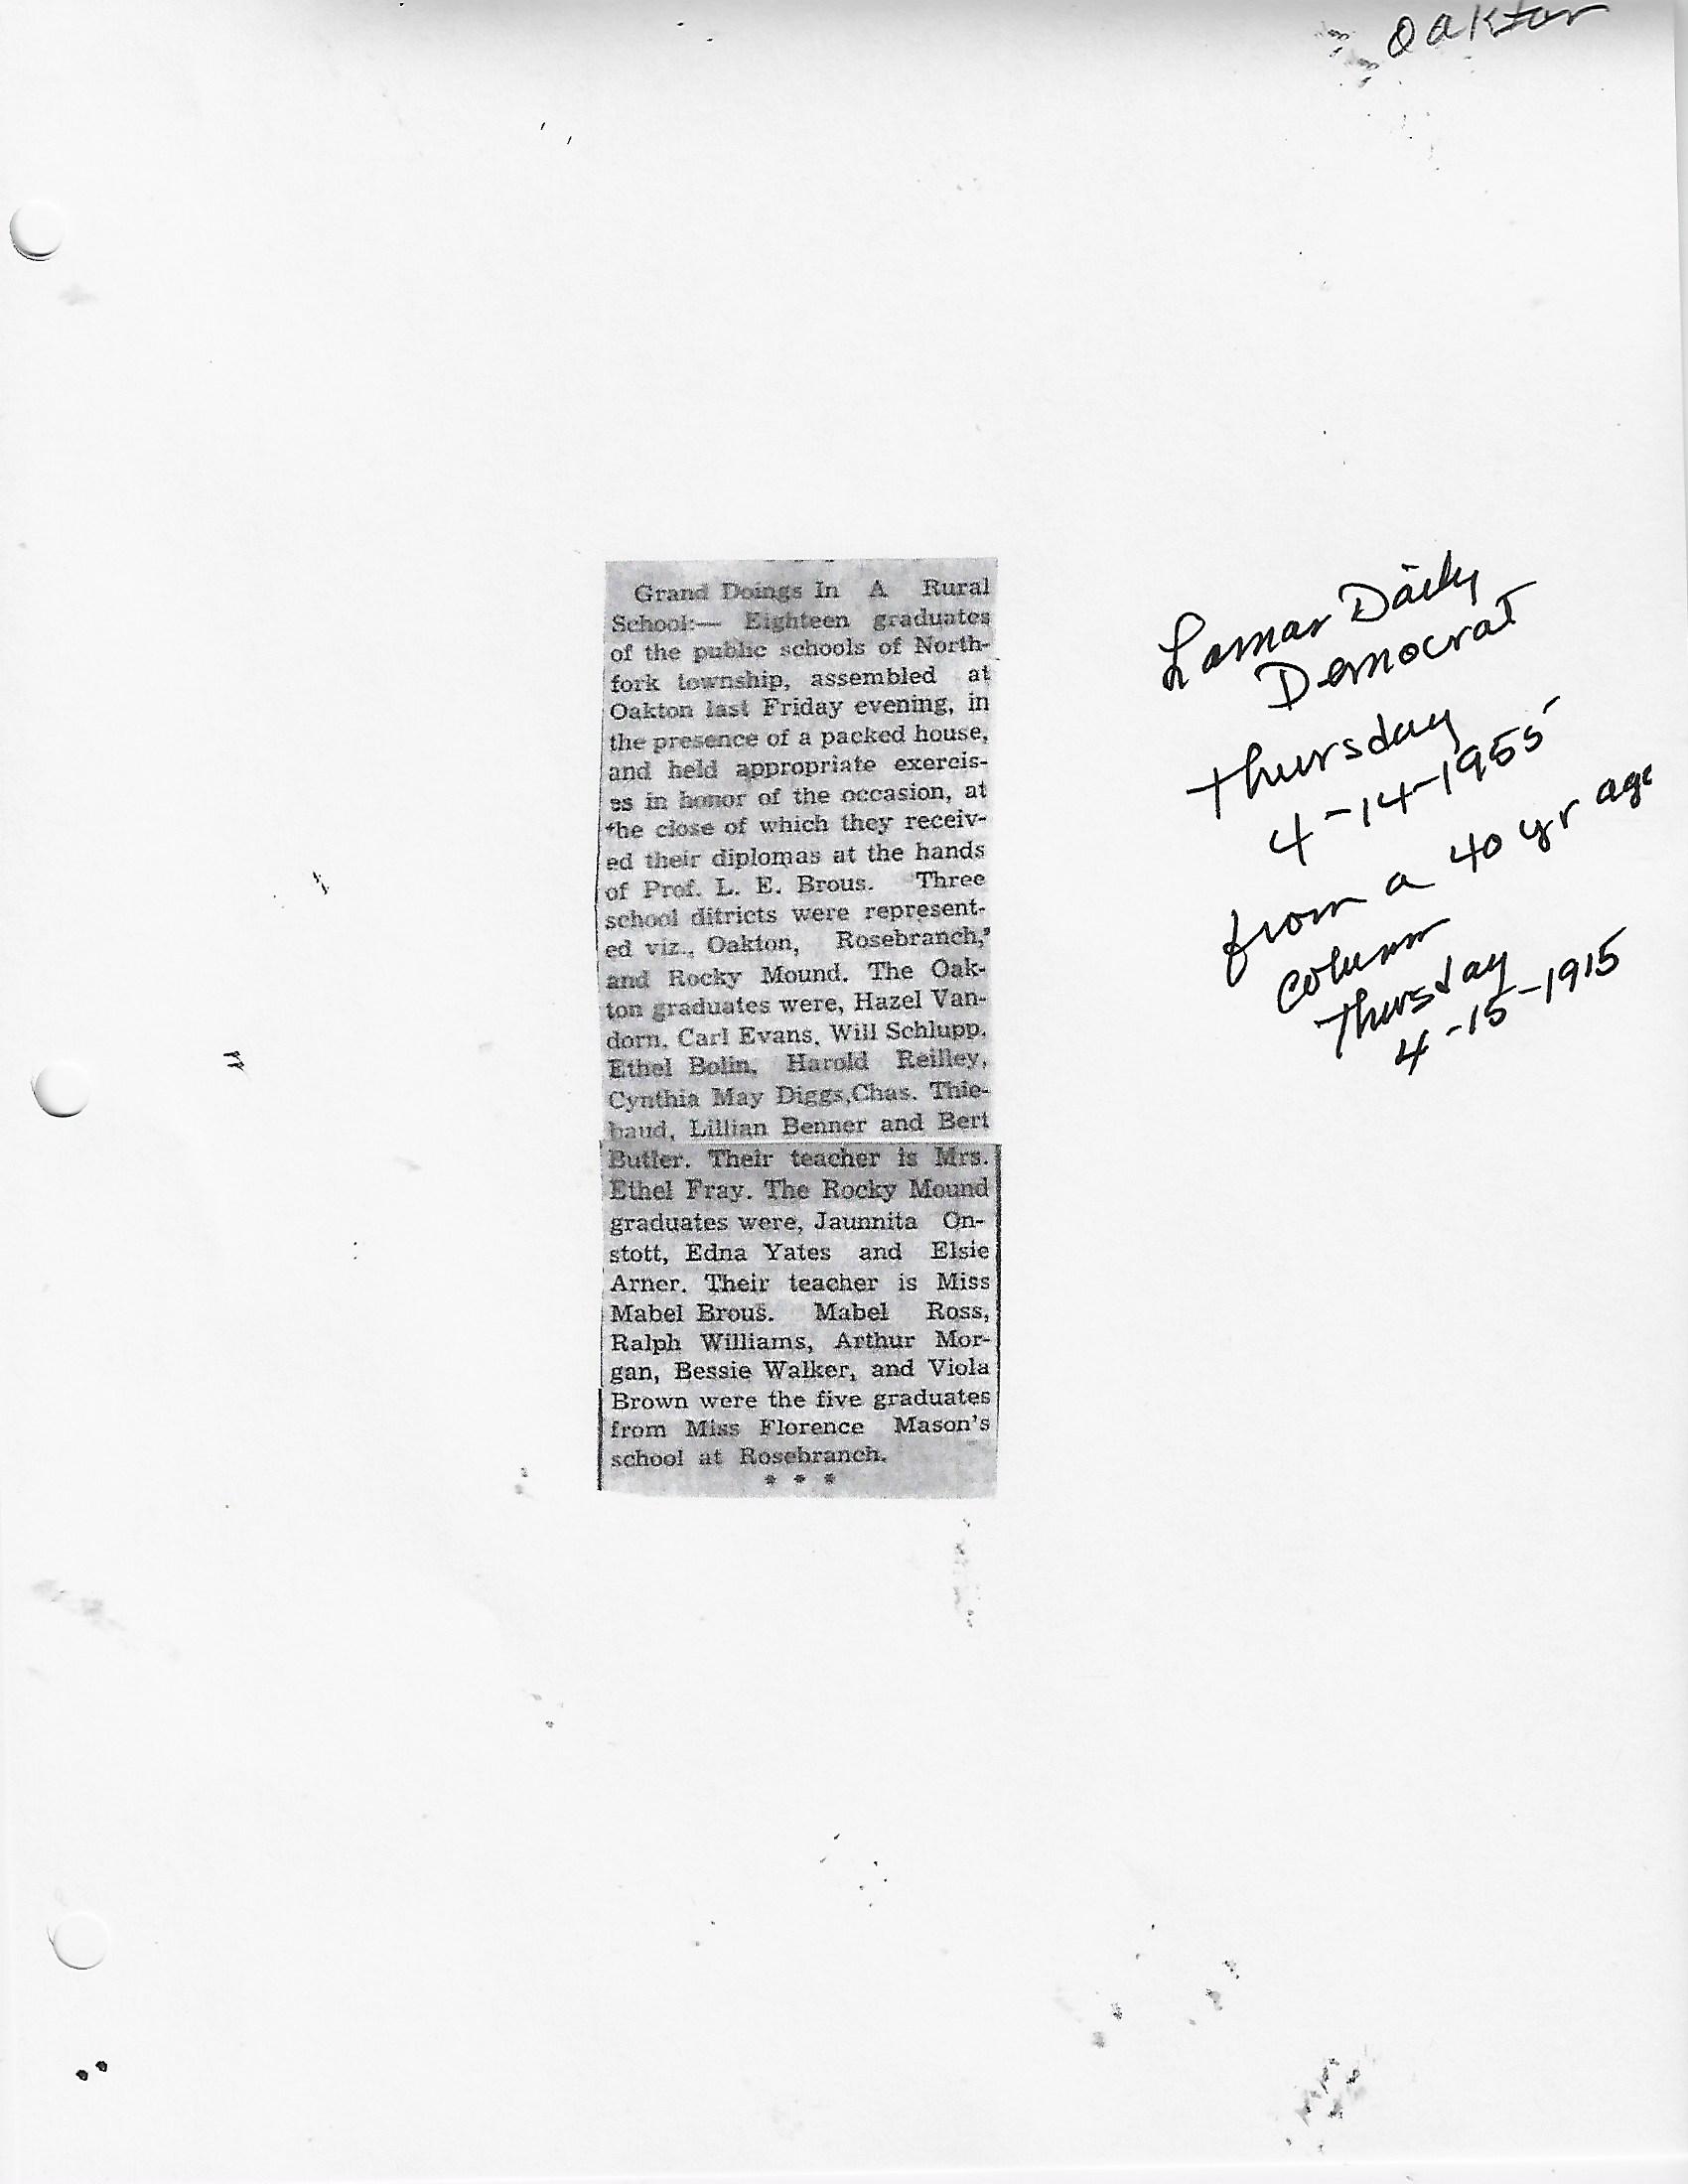 Oakton
Grand Doings In A Rural
School:— Eighteen graduates
of the public schools of North-
fork township, assembled at
Oakton last Friday evening, in
the presence of a packed house,
and held appropriate exercis-
es in honor of the occasion, at
the close of which they receiv-
ed their diplomas at the hands
of Prof. L. E. Brous. Three
school ditricts were represent-
ed viz., Oakton, Rosebranch,
and Rocky Mound. The Oak-
ton graduates were, Hazel Van-
dorn, Carl Evans, Will Schlupp,
Ethel Bolin, Harold Reilley,
Cynthia May Diggs,Chas. Thie-
baud, Lillian Benner and Bert
Butler. Their teacher is Mrs.
Ethel Fray. The Rocky Mound
graduates were, Jaunnita On-
stott, Edna Yates and Elsie
Arner. Their teacher is Miss
Mabel Brous. Mabel Ross,
Ralph Williams, Arthur Mor-
gan, Bessie Walker, and Viola
Brown were the five graduates
from Miss Florence Mason's
school at Rosebranch.
* * *
Lamar Daily
Democrat
Thursday
4-14-1955
from a 40 yr ago
column
Thursday
4-15-1915